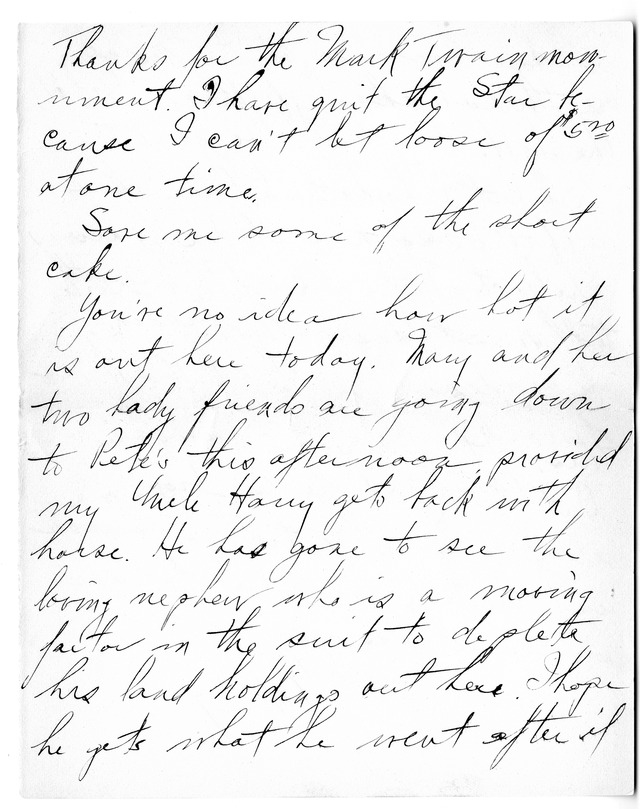 Thanks for the Mark Twain mon-
ument. I have quit the Star be-
cause I can't let loose of $5.00
at one time.
Save me some of the short
cake.
You're no idea how hot it
is out here today. Mary and her
two lady friends are going down
to Pete's this afternoon, provided
my Uncle Harry gets back with
horse. He has gone to see the
loving nephew who is a moving
factor in the suit to deplete
his land holdings out here. I hope
he gets what he went after if